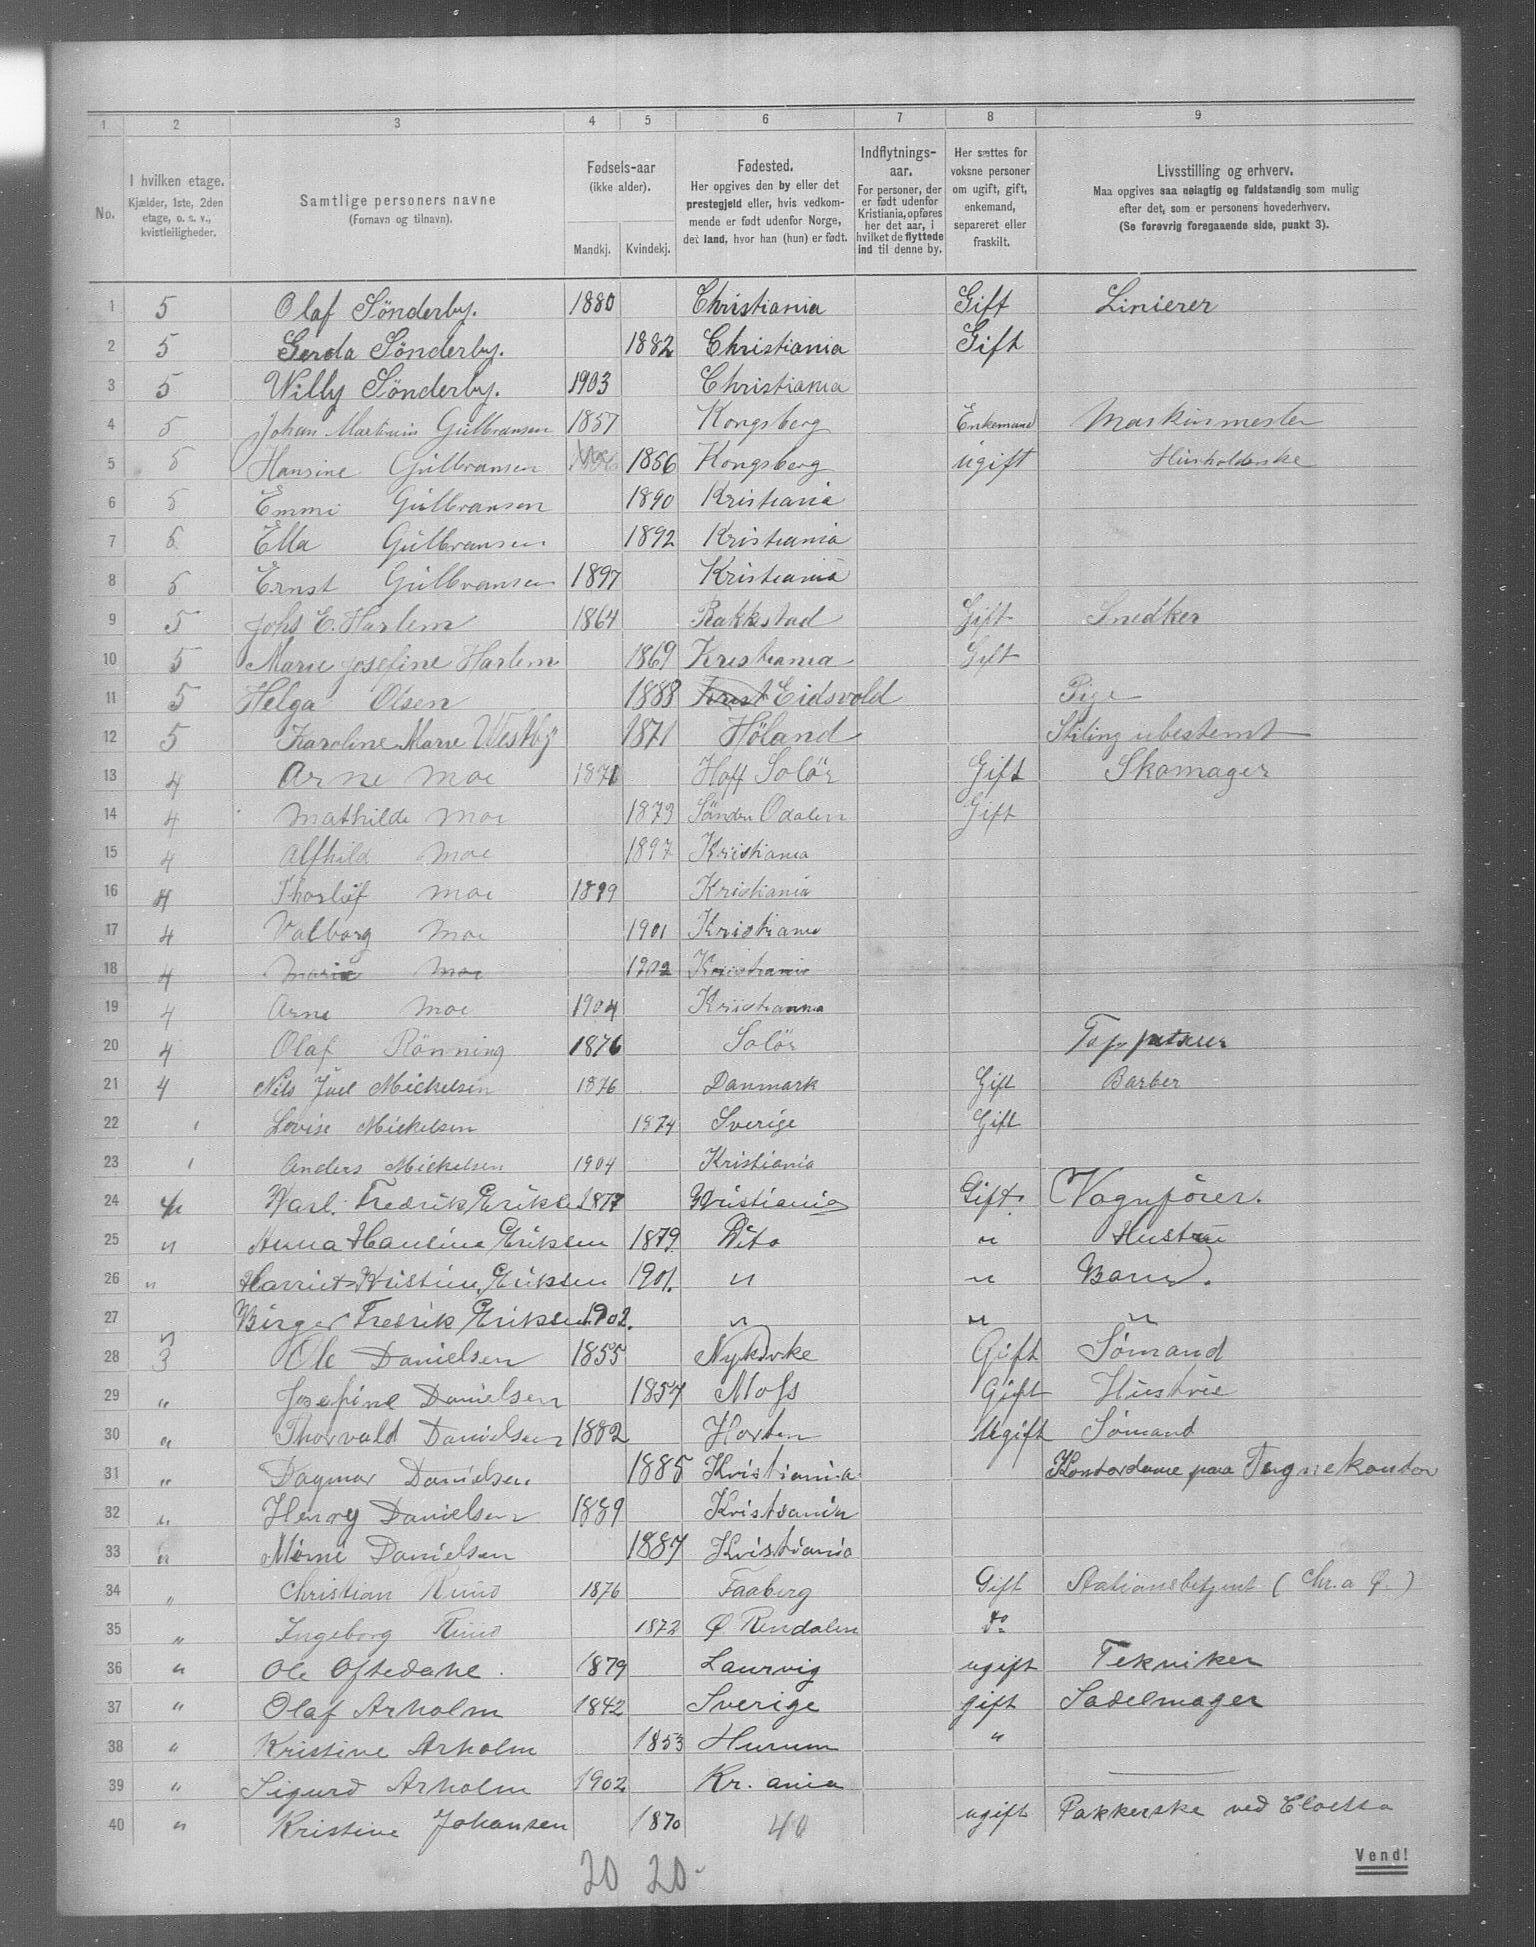 1 2 3 4 5 6 7 8 9
No. I hvilken etage. Kjælder, 1ste, 2den etage, o. s. v., kvistleiligheder. Samtlige personers navne (Fornavn og tilnavn). Fødsels-aar (ikke alder). Mandkj. Kvindekj. Fødested. Her opgives den by eller det prestegjeld eller, hvis vedkommende er født udenfor Norge, det land, hvor han (hun) er født. Indflytnings-aar. For personer, der er født udenfor Kristiania, opføres her det aar, i hvilket de flyttede ind til denne by. Her sættes for voksne personer om ugift, gift, enkemand, separeret eller fraskilt. Livsstilling og erhverv. Maa opgives saa nøiagtig og fuldstændig som mulig efter det, som er personens hovederhverv. (Se forøvrig foregaaende side, punkt 3).
1 5 Olaf Sönderby. 1880 Christiania Gift Linierer
2 5 Gerda Sönderby. 1882 Christiania Gift
3 5 Willy Sönderby. 1903 Christiania
4 5 Johan Martinius Gulbransen 1857 Kongsberg Enkemand Maskinmester
5 5 Hansine Gulbransen 1856 Kongsberg ugift Husholderske
6 5 Emmi Gulbransen 1890 Kristiania
7 5 Ella Gulbransen 1892 Kristiania
8 5 Ernst Gulbransen 1897 Kristiania
9 5 Johs E. Harlem 1864 Rakkestad Gift Snedker
10 5 Marie Josefine Harlem 1869 Kristiania Gift
11 5 Helga Olsen 1888 Eidsvold Pige
12 5 Karoline Marie Westby 1871 Höland Stiling ubestemt
13 4 Arne Moe 1871 Hoff Solör Gift Skomager
14 4 Mathilde Moe 1873 Söndre Odalen Gift
15 4 Alfhild Moe 1897 Kristiania
16 4 Thorleif Moe 1899 Kristiania
17 4 Valborg Moe 1901 Kristiania
18 4 Marie Moe 1902 Kristiania
19 4 Arne Moe 1904 Kristiania
20 4 Olaf Rönning 1876 Solör
21 4 Nils Juel Mickelsen 1876 Danmark Gift Barber
22 " Lovise Mickelsen 1874 Sverige Gift
23 " Anders Mickelsen 1904 Kristiania
24 4 Karl. Fredrik Eriksen 1877 Kristiania Gift. Vognfører.
25 " Anna Hansine Eriksen 1879 Dito " Hustru
26 " Harriet Kristine Eriksen 1901. " " Barn.
27 " Birger Fredrik Eriksen 1902. " " "
28 3 Ole Danielsen 1855 Nykirke Gift Sømand
29 " Josefine Danielsen 1857 Moss Gift Hustrue
30 " Thorvald Danielsen 1882 Horten Ugift Sømand
31 " Dagmar Danielsen 1885 Kristiania Kontordame paa Tegnekontor
32 " Henry Danielsen 1889 Kristiania
33 " Mimi Danielsen 1887 Kristiania
34 " Christian Ruud 1876 Faaberg Gift Stationsbetjent (Chr.a Ø.)
35 " Ingeborg Ruud 1872 Ø Rendalen do
36 " Ole Oftedahl. 1879 Laurvig ugift Tekniker
37 " Olaf Arholm 1842 Sverige gift Sadelmager
38 " Kristine Arholm 1853 Hurum "
39 " Sigurd Arholm 1902 Kr. ania
40 " Kristine Johansen 1870 40 ugift Pakkerske ved Cloetta
Vend!
20 20